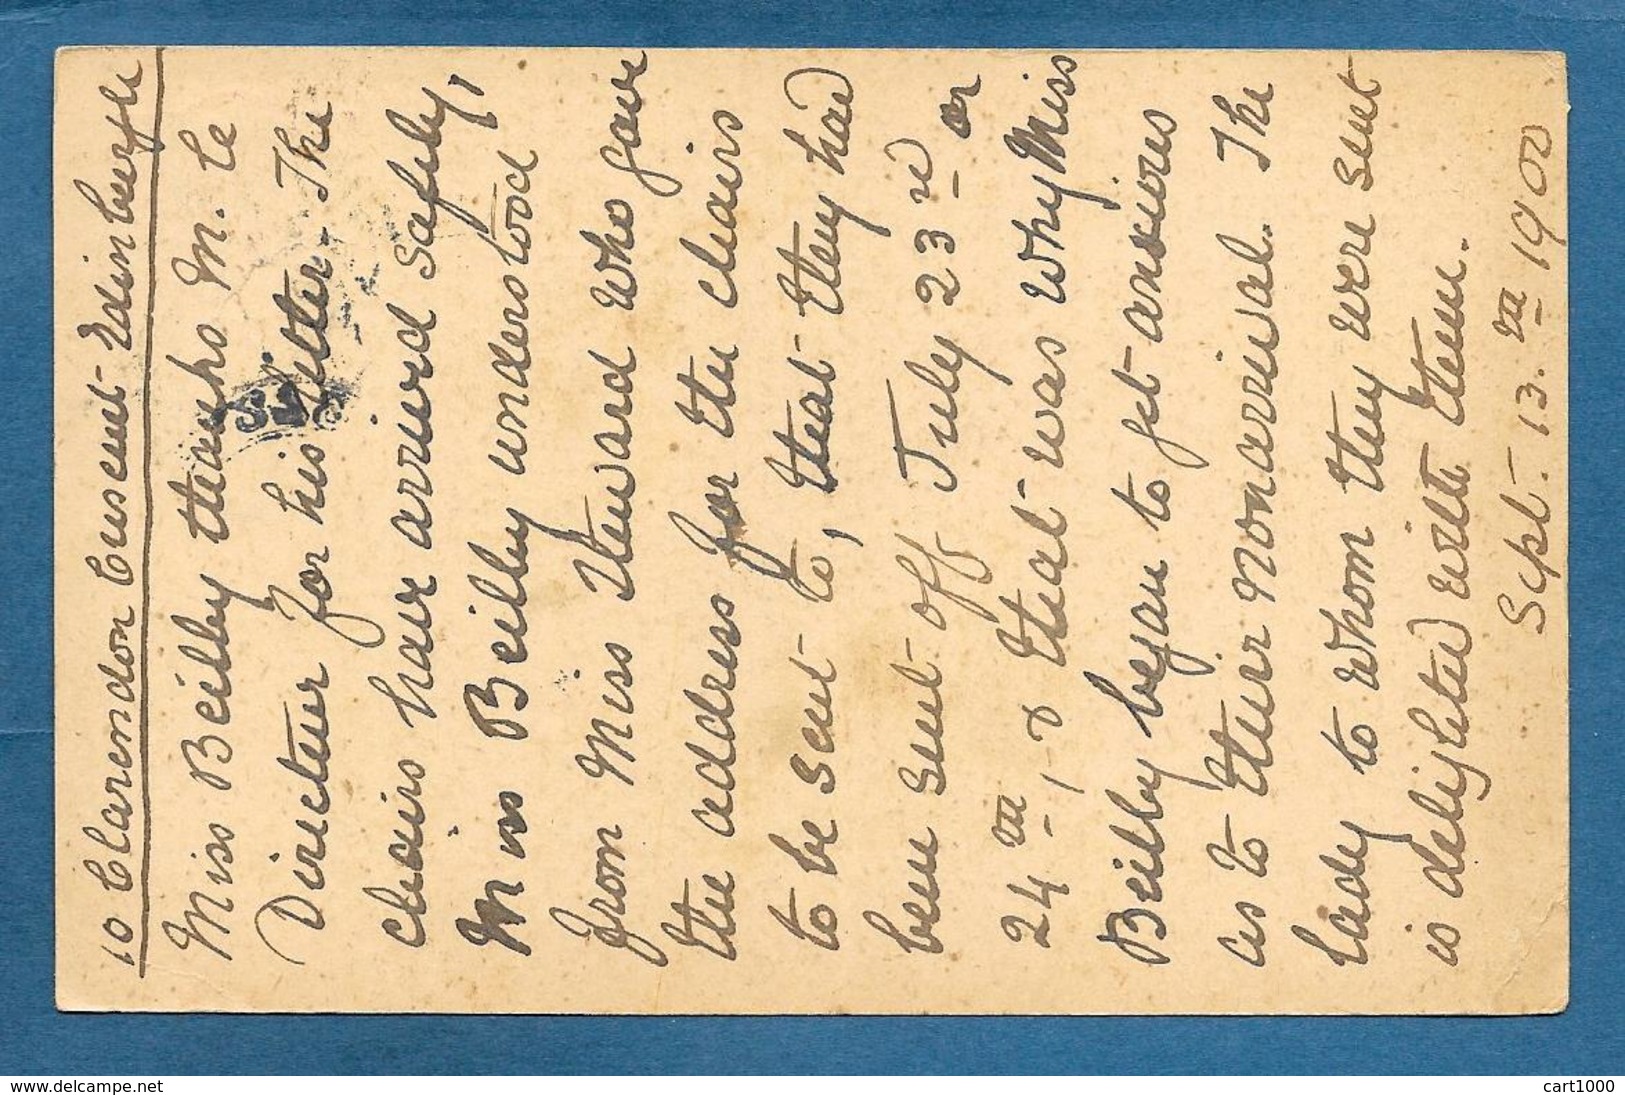 10 Clarendon Crescent - Edinburgh
Miss Beilby thanks M. le
Directeur for his letter. The
chairs have arrived safely,
Miss Beilby understood
from Miss Steward who gave
the address for the chairs
to be sent to, that they had
been sent off July 23rd or
24th, & that was why Miss
Beilby began to get anxious
as to their nonarrival. The
lady to whom they were sent
is delighted with them.
Sept. 13.th 1902
www.delcampe.net
cart1000